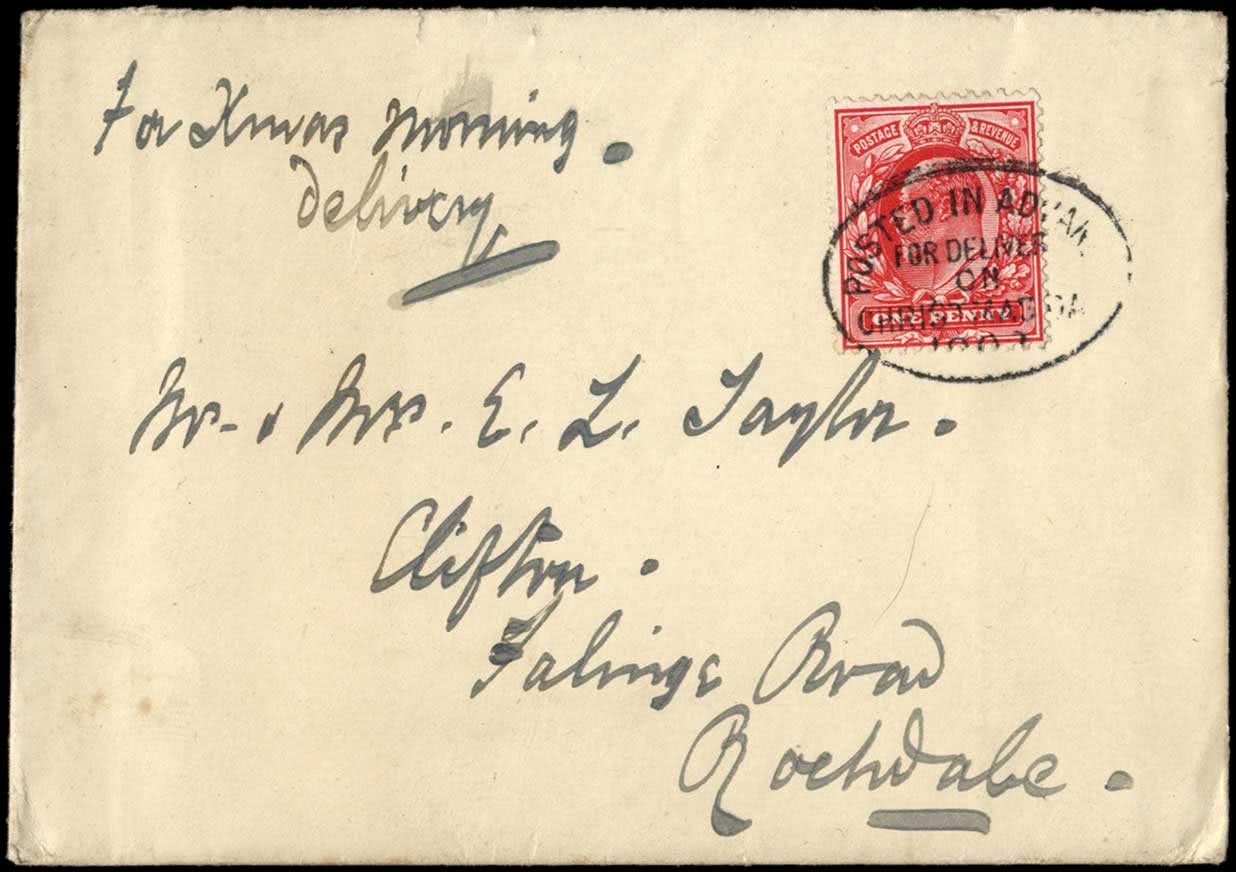 For Xmas Morning.
delivery
POSTAGE & REVENUE
POSTED IN ADVAN
FOR DELIVER
ON
CHRISTMAS DA
ONE PENNY
Mr. & Mrs. E. L. Taylor.
Clifton.
Falinge Road
Rochdale.